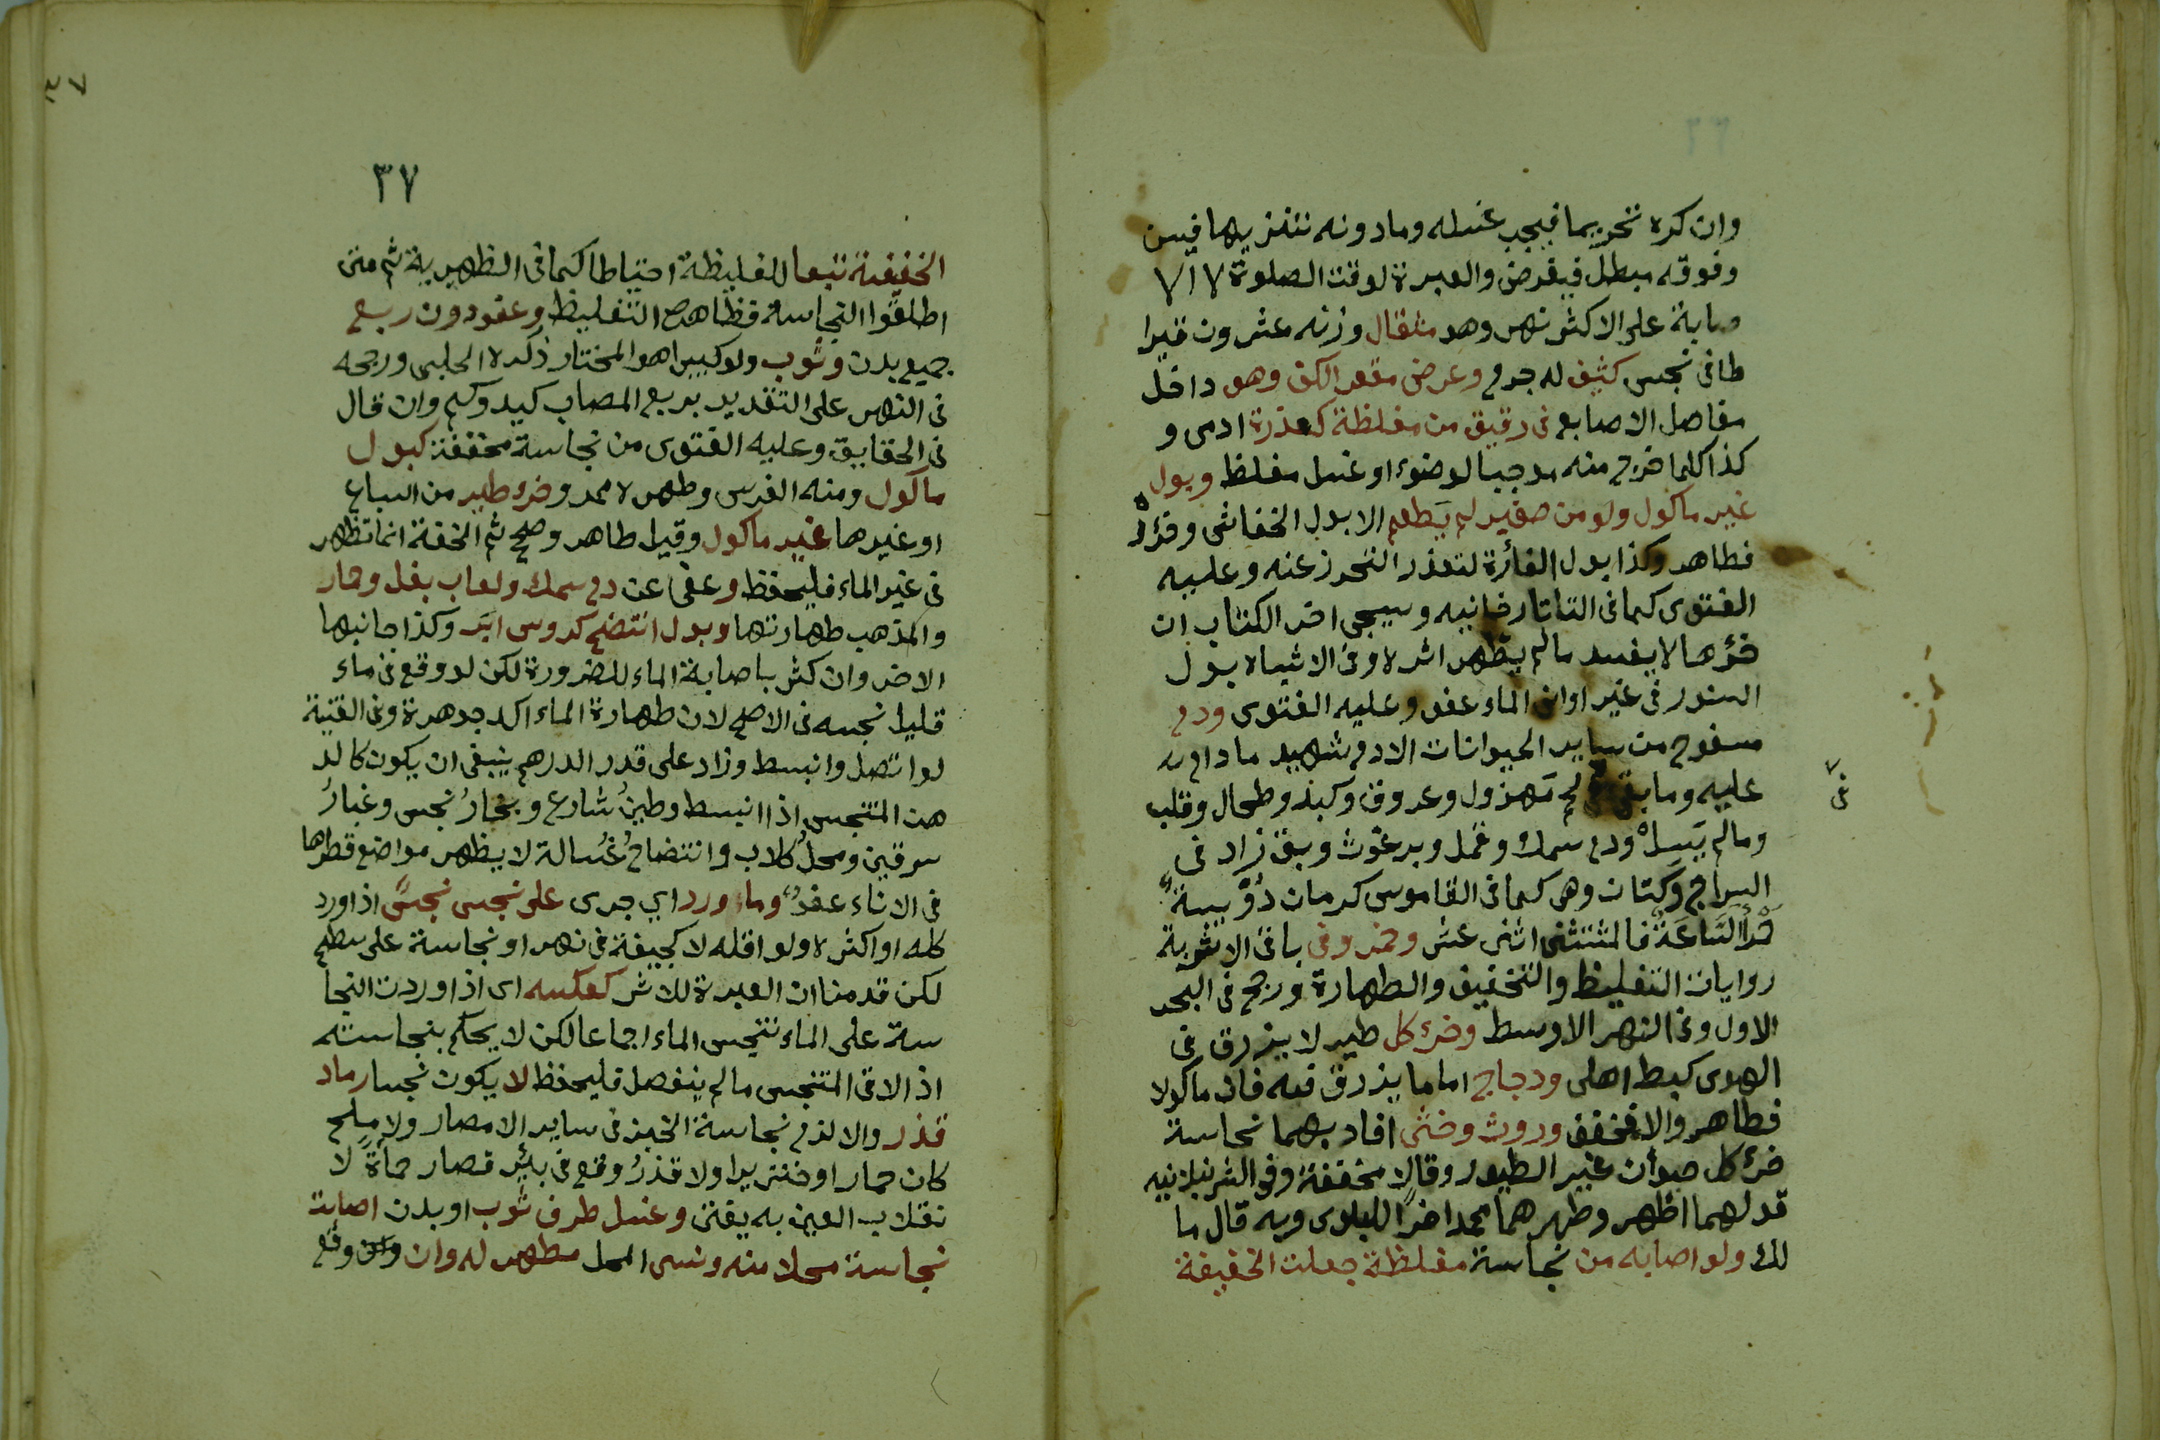 ٣٦
وان كره تحريما فيجب غسله ومادونه تنزيها فيسن
وفوقه مبطل فيفرض والعبرة لوقت الصلوة لالا
صابة على الاكثر نهر وهو مثقال وزنه عشرون قيرا
طا فى نجس كثيف له جرم وعرض مقعر الكف وهو داخل
مفاصل الاصابع فى رقيق من مغلظة كعذرة ادمى و
كذا كلما خرج منه موجبا لوضوء او غسل مغلظ وبول
غير ماكول ولو من صغير لم يَطعم الا بول الخفاش وخرؤه
فطاهر وكذا بول الفأرة لتعذر التحرز عنه وعليه
الفتوى كما فى التاتارخانيه وسيجى اخر الكتاب ان
خرؤها لا يفسد مالم يظهر اثره وفى الاشباه بول
السنور فى غير اوانى الماء عفو وعليه الفتوى ودم
مسفوح من ساير الحيوانات الا دم شهيد مادام
عليه وما بقى فى لحم مَهزول وعروق وكبد وطحال وقلب
ومالم يَسِلْ ودم سمك وقمل وبرغوث وبق زاد فى
السراج وكتان وهى كما فى القاموس كرمان دُوَيبة
فالمستثنى اثنى عشر وخمر وفى باقى الاشربة
روايات التغليظ والتخفيف والطهارة ورجح فى البحر
الاول وفى النهر الاوسط وخرء كل طير لا يذرق فى
الهوى كبط اهلى ودجاج اما ما يذرق فيه فان ماكولا
فطاهر والا فمخفف وروث وخثى افاد بهما نجاسة
خرء كل حيوان غير الطيور وقالا مخففة وفى الشرنبلانيه
قولهما اظهر وطهرهما محمد اخرًا للبلوى وبه قال ما
لك ولو اصابه من نجاسة مغلظة جعلت الخفيفة
فى
٣٧
الخفيفة تبعا للغليظة احتياطا كما فى الظهيرية ثم متى
اطلقوا النجاسة فظاهره التغليظ وعفو دون ربع
جميع بدن وثوب ولو كبيرا هو المختار ذكره الحلبى ورجحه
فى النهر على التقدير بربع المصاب كيد وكم وان قال
فى الحقايق وعليه الفتوى من نجاسة مخففة كبول
ماكول ومنه الفرس وطهره محمد وخرء طير من السباع
او غيرها غير ماكول وقيل طاهر وصحح ثم الخفة انما تظهر
فى غير الماء فليحفظ وعفى عن دم سمك ولعاب بغل وحمار
والمذهب طهارتها وبول انتضح كروس ابَر وكذا جانبها
الاخر وان كثر باصابة الماء للضرورة لكن لو وقع فى ماء
قليل نجسه فى الاصح لان طهارة الماء اكد جوهرة وفى القنية
لو اتصل وانبسط وزاد على قدر الدرهم ينبغى ان يكون كالد
هن المتنجس اذا انبسط وطينُ شارع وبخارُ نجس وغبارُ
سرقين ومحلُ كلاب وانتضاحُ غُسالة لا يظهر مواضع قطرها
فى الاناء عفوٌ وماء ورد اى جرى على نجس نجسٌ اذا ورد
كله او اكثره ولو اقله لا كجيفة فى نهر او نجاسة على سطح
لكن قدمنا ان العبرة للاثر كعكسه اى اذا وردت النجا
سة على الماء تنجس الماء اجماعا لكن لا يحكم بنجاسته
اذا لاقى المتنجس مالم ينفصل فليحفظ لا يكون نجسا رماد
قذر والا لزم نجاسة الخبز فى ساير الامصار ولا ملح
كان حمارا او خنزيرا ولا قذرٌ وقع فى بئر فصار حمأة لا
نقلاب العين به يفتى وغسل طرف ثوب او بدن اصابت
نجاسة محلا منه ونسى المحل مطهر له وان وقع